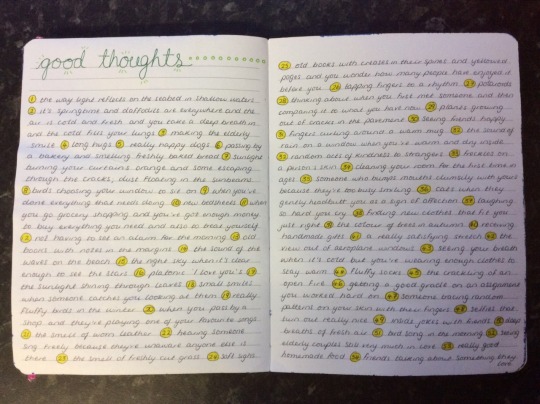 good thoughts
1 the way light reflects on the seabed in shallow waters
2 it's springtime and daffodils are everywhere and the
air is cold and fresh and you take a deep breath in
and the cold fills your lungs 3 making the elderly
smile 4 long hugs 5 really happy dogs 6 passing by
a bakery and smelling freshly baked bread 7 sunlight
turning your curtains orange and some escaping
through the cracks, dust floating in the sunbeams
8 birds choosing your window to sit on 9 when you've
done everything that needs doing 10 new bedsheets 11 when
you go grocery shopping and you've got enough money
to buy everything you need and also to treat yourself
12 not having to set an alarm for the morning 13 old
books with notes in the margins 14 the sound of the
waves on the beach 15 the night sky when it's clear
enough to see the stars 16 platonic 'I love you's 17
the sunlight shining through leaves 18 small smiles
when someone catches you looking at them 19 really
fluffy birds in the winter 20 when you pass by a
shop and they're playing one of your favourite songs
21 the smell of worn leather 22 hearing someone
sing freely because they're unaware anyone else is
there 23 the smell of freshly cut grass 24 soft light
25 old books with creases in their spines and yellowed
pages and you wonder how many people have enjoyed it
before you 26 tapping fingers to a rhythm 27 polaroids
28 thinking about when you first met someone and then
comparing it to what you have now 29 plants growing
out of cracks in the pavement 30 seeing friends happy
31 fingers curling around a warm mug 32 the sound of
rain on a window when you're warm and dry inside
33 random acts of kindness to strangers 33 freckles on
a person's skin 34 cleaning your room for the first time in
ages 35 someone who bumps mouths clumsily with yours
because they're too busy smiling 36 cats when they
gently headbutt you as a sign of affection 37 laughing
so hard you cry 38 finding new clothes that fit you
just right 39 the colour of trees in autumn 40 receiving
handmade gifts 41 a really satisfying stretch 42 the
view out of aeroplane windows 43 seeing your breath
when it's cold but you're wearing enough clothes to
stay warm 44 fluffy socks 45 the crackling of an
open fire 46 getting a good grade on an assignment
you worked hard on 47 someone tracing random
patterns on your skin with their fingers 48 selfies that
turn out really nice 49 inside jokes with friends 50 deep
breaths of fresh air 51 bird song in the morning 52 seeing
elderly couples still very much in love 53 really good
homemade food 54 friends talking about something they
love